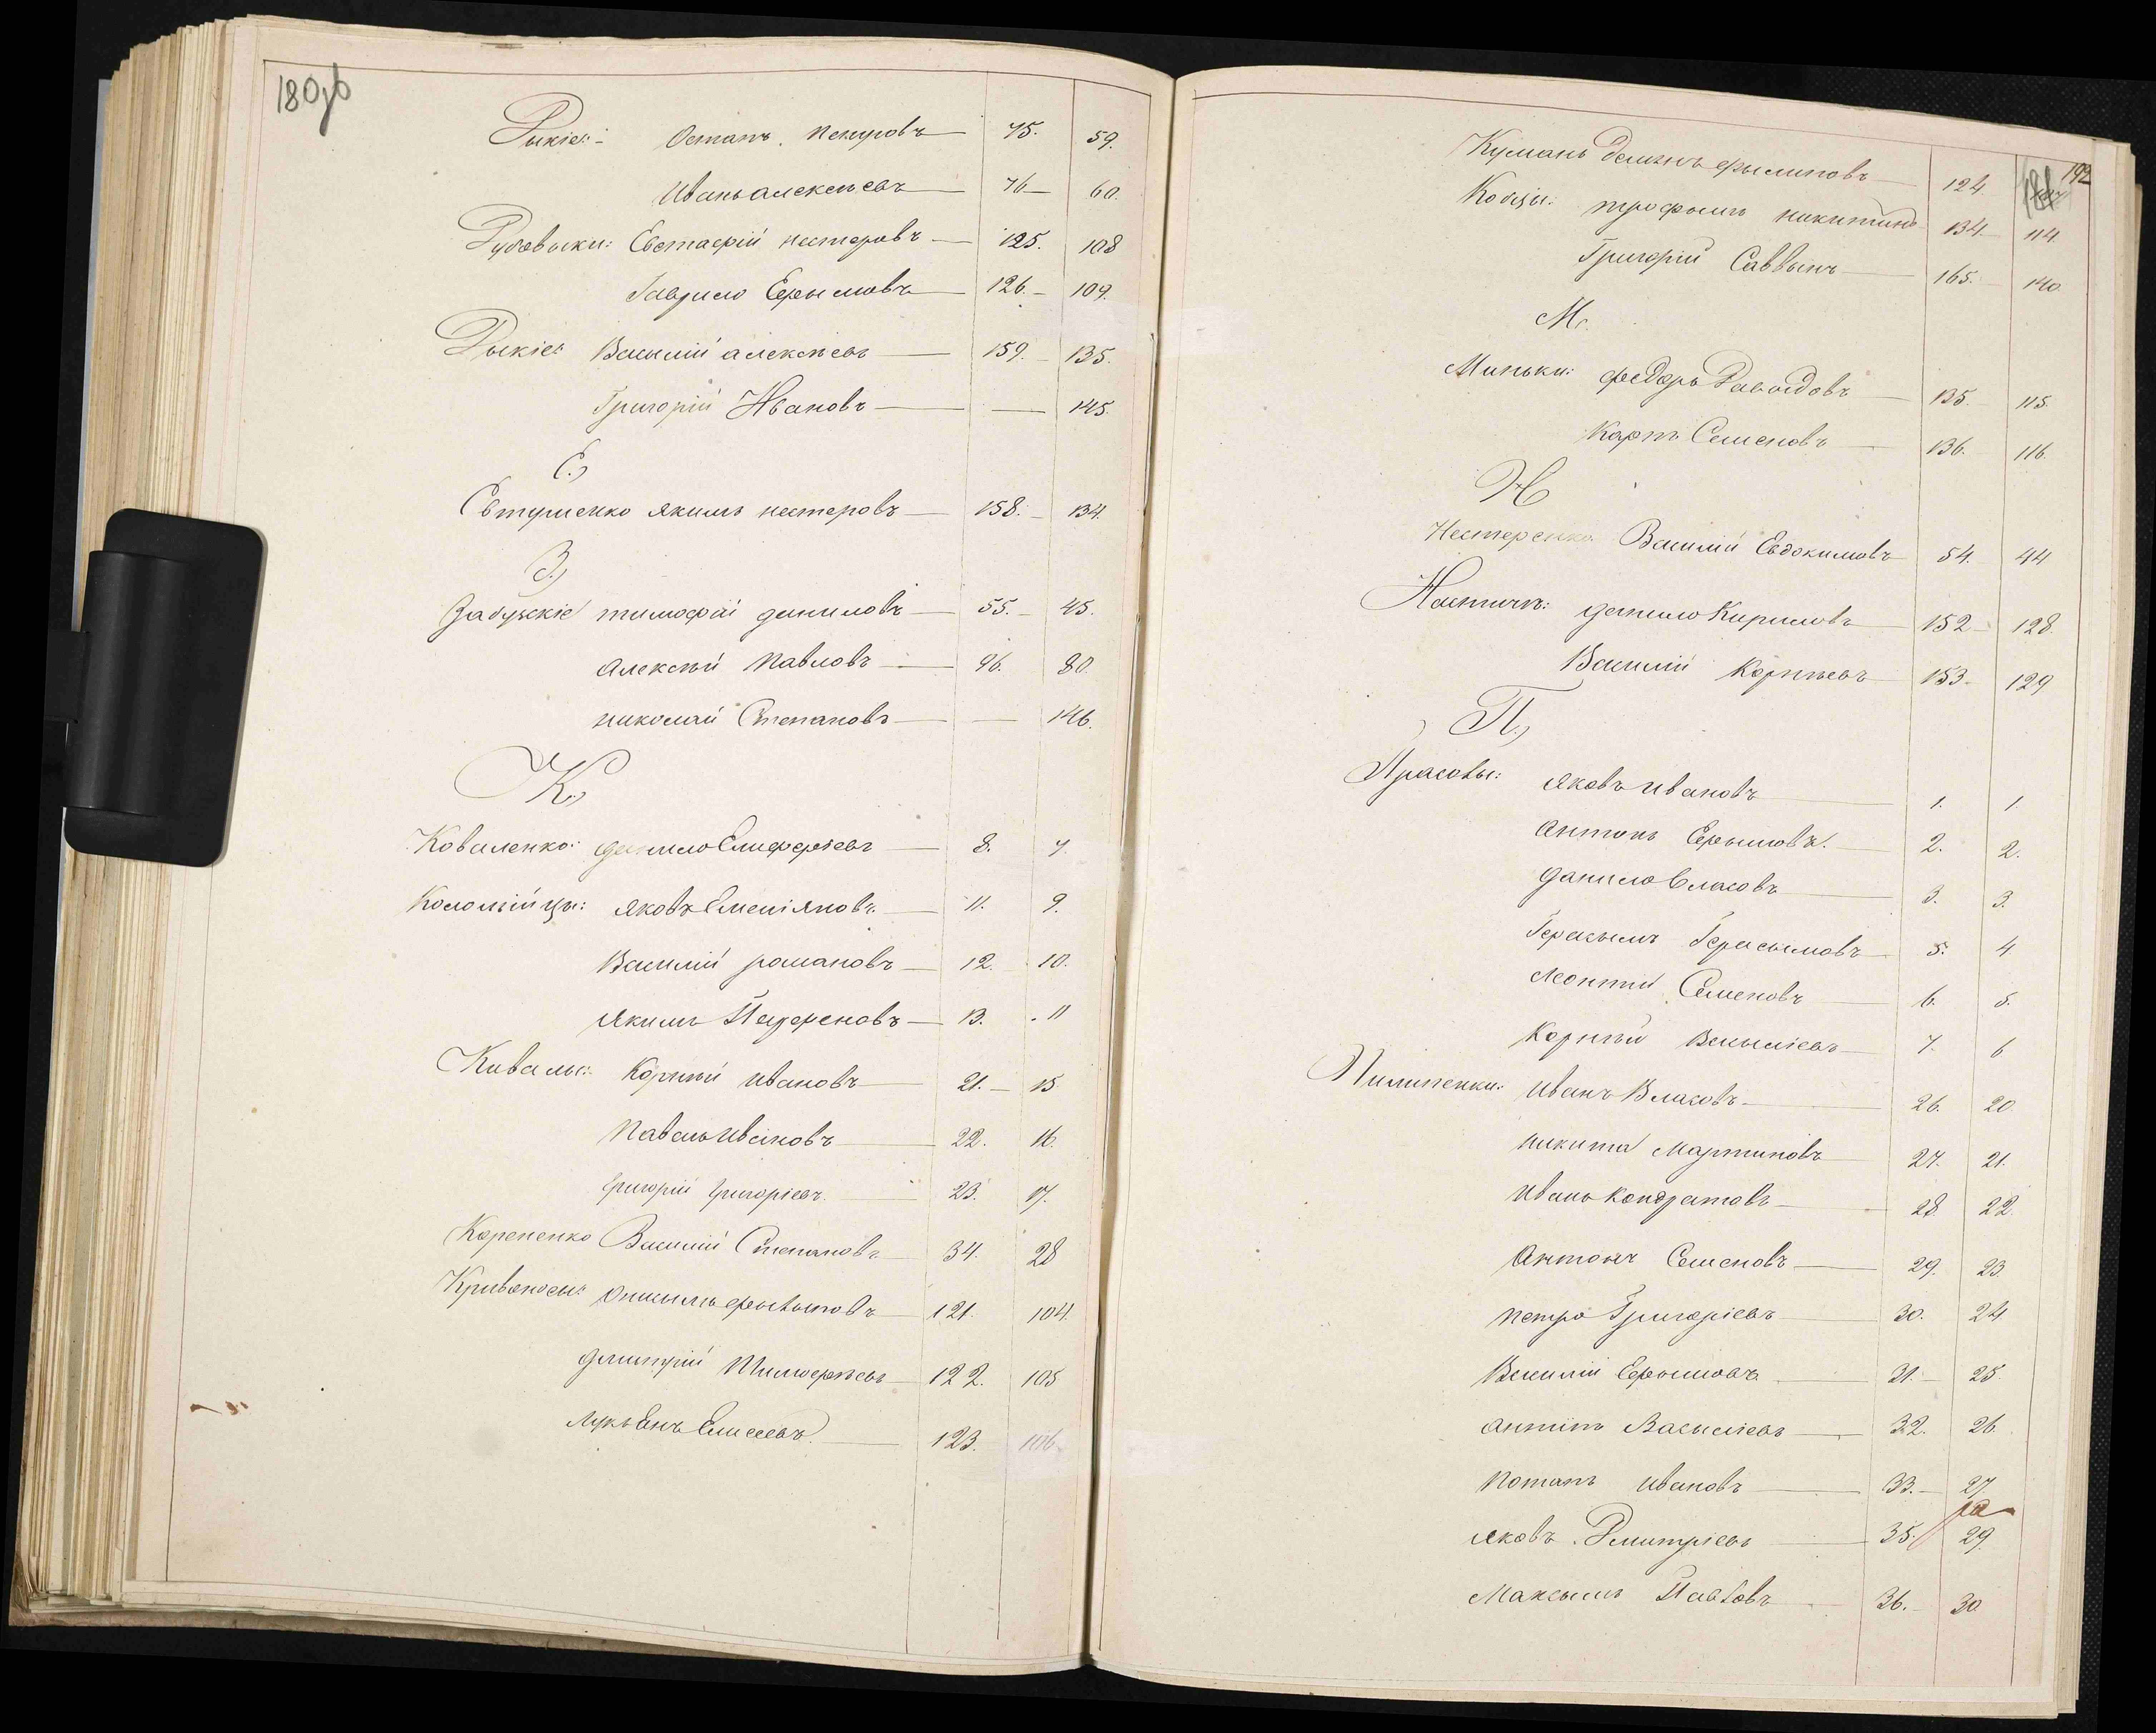 180об
Дикіе: Остапъ Петровъ 75. 59.
Иванъ алексѣевъ 76 60.
Дубовыки: Евстафій нестеровъ 125. 108
Гаврило Ефымовъ 126. 109.
Дыкіе: Василій алексѣевъ 159. 135.
Григорій Ивановъ 145.
Е.)
Евтушенко якимъ нестеровъ 158. 134.
З.)
Забузскіе тимофѣй даниловъ 55. 45.
алексѣй Павловъ 96. 80.
николай Степановъ 146.
К.)
Коваленко: данило Елифферіевъ 8. 7.
Коломійцы: яковъ Емеліяновъ 11. 9.
Василій романовъ 12. 10.
якимъ Парфеновъ 13. 11
Ковали: Корній ивановъ 21. 15
Павелъ ивановъ 22. 16.
григорій григоріевъ 23. 17.
Корененко Василій Степановъ 34. 28
Кривоносы: 121. 104.
дмитрій Тимофѣевъ 122. 105
лукьянъ Елисеевъ 123. 106
192
Куманъ фылиповъ 124.
трофымъ никитинъ 134. 114.
Григорій Саввынъ 165. 140.
М.
Миньки: федоръ Давыдовъ 135. 115.
Карпъ Семеновъ 136. 116.
Н
Нестеренко Василій Евдокимовъ 54. 44
данило Кириловъ 152 128.
Василій Корнѣевъ 153 129
П.)
Прасовы: яковъ ивановъ 1. 1.
антонъ Ефымовъ. 2. 2.
данило Власовъ 3. 3.
Герасымъ Герасымовъ 5. 4
леонтій Семеновъ 6. 5.
Корнѣй Васыліевъ 7. 6
Пилипенки: иванъ Власовъ 26. 20
никита Мартиновъ 27. 21.
иванъ кондратовъ 28. 22.
антонъ Семеновъ 29. 23.
петро Григоріевъ 30. 24
Василій Ефымовъ 31. 25.
антипъ Васыліевъ 32. 26.
потапъ ивановъ 33. 27
яковъ Дмитріевъ 35. 29.
Максымъ Павловъ 36. 30.